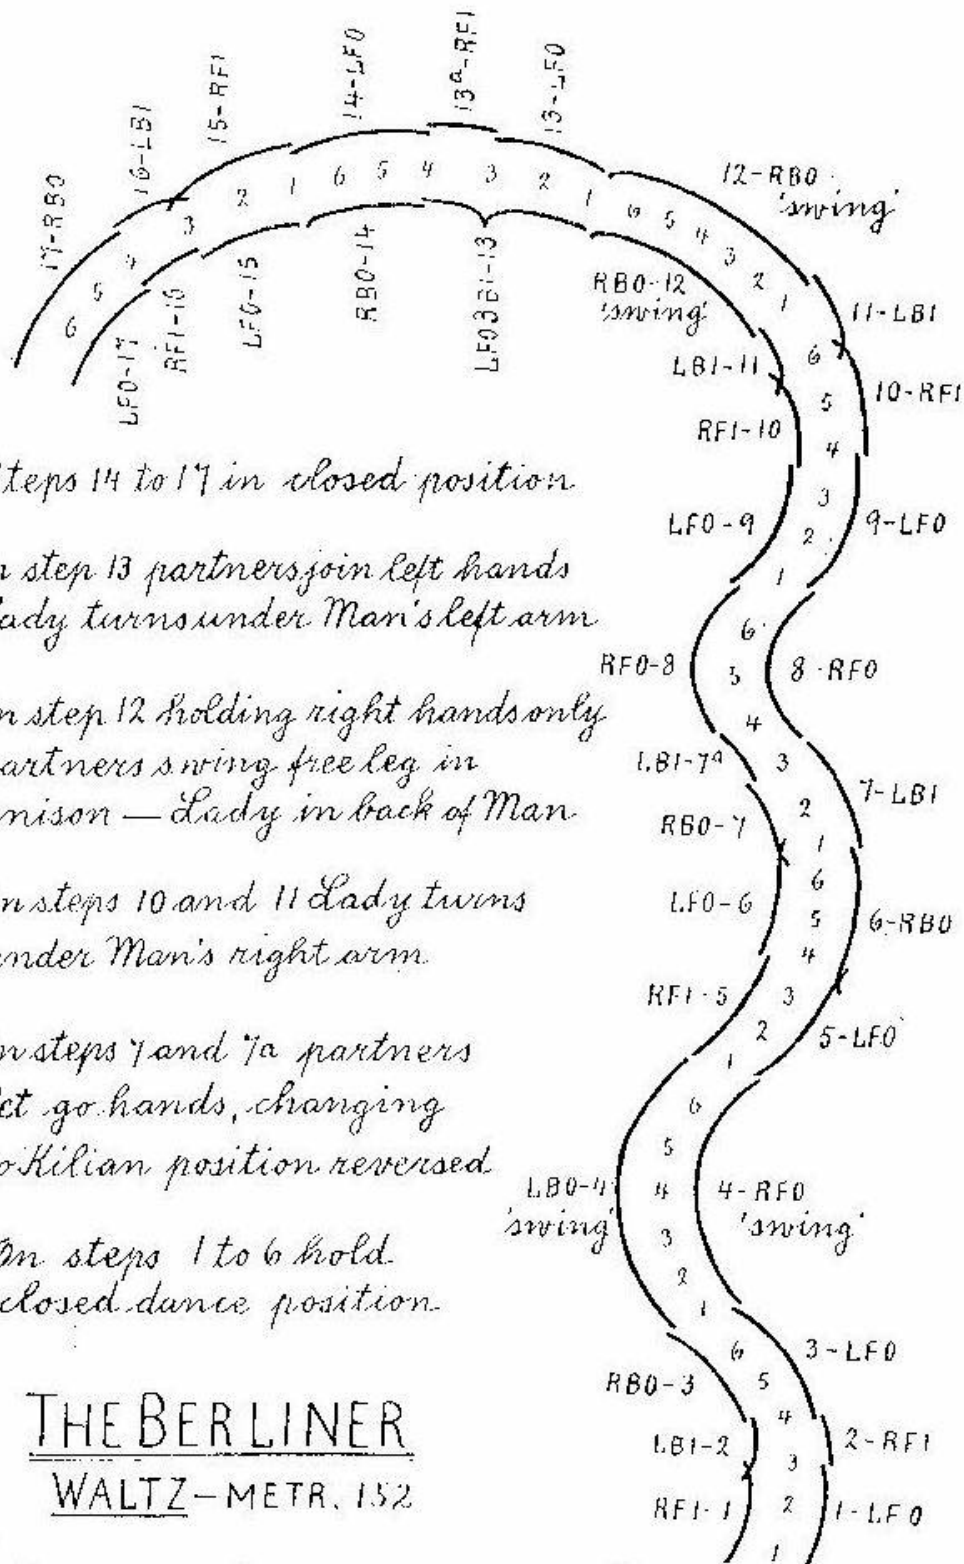 17-RBO
16-LBI
15-RFI
14-LFO
13a-RFI
13-LFO
12-RBO
'swing'
11-LBI
10-RFI
9-LFO
8-RFO
7-LBI
6-RBO
5-LFO
4-RFO
'swing'
3-LFO
2-RFI
1-LFO
6 5 4 3 2 1 6 5 4 3 2 1 6 5 4 3 2 1
6 5 4 3 2 1
6 5 4 3 2 1
6 5 4 3 2 1
6 5 4 3 2 1
6 5 4 3 2 1
LFO-17
RFI-16
LFO-15
RBO-14
LFO3BI-13
RBO-12
'swing'
LBI-11
RFI-10
LFO-9
RFO-8
LBI-7a
RBO-7
LFO-6
RFI-5
LBO-4
'swing'
RBO-3
LBI-2
RFI-1
teps 14 to 17 in closed position
n step 13 partners join left hands
ady turns under Man's left arm
n step 12 holding right hands only
artners swing free leg in
nison — Lady in back of Man
n steps 10 and 11 Lady turns
nder Man's right arm
n steps 7 and 7a partners
let go hands, changing
o Kilian position reversed
On steps 1 to 6 hold
closed dance position
THE BERLINER
WALTZ – METR. 152